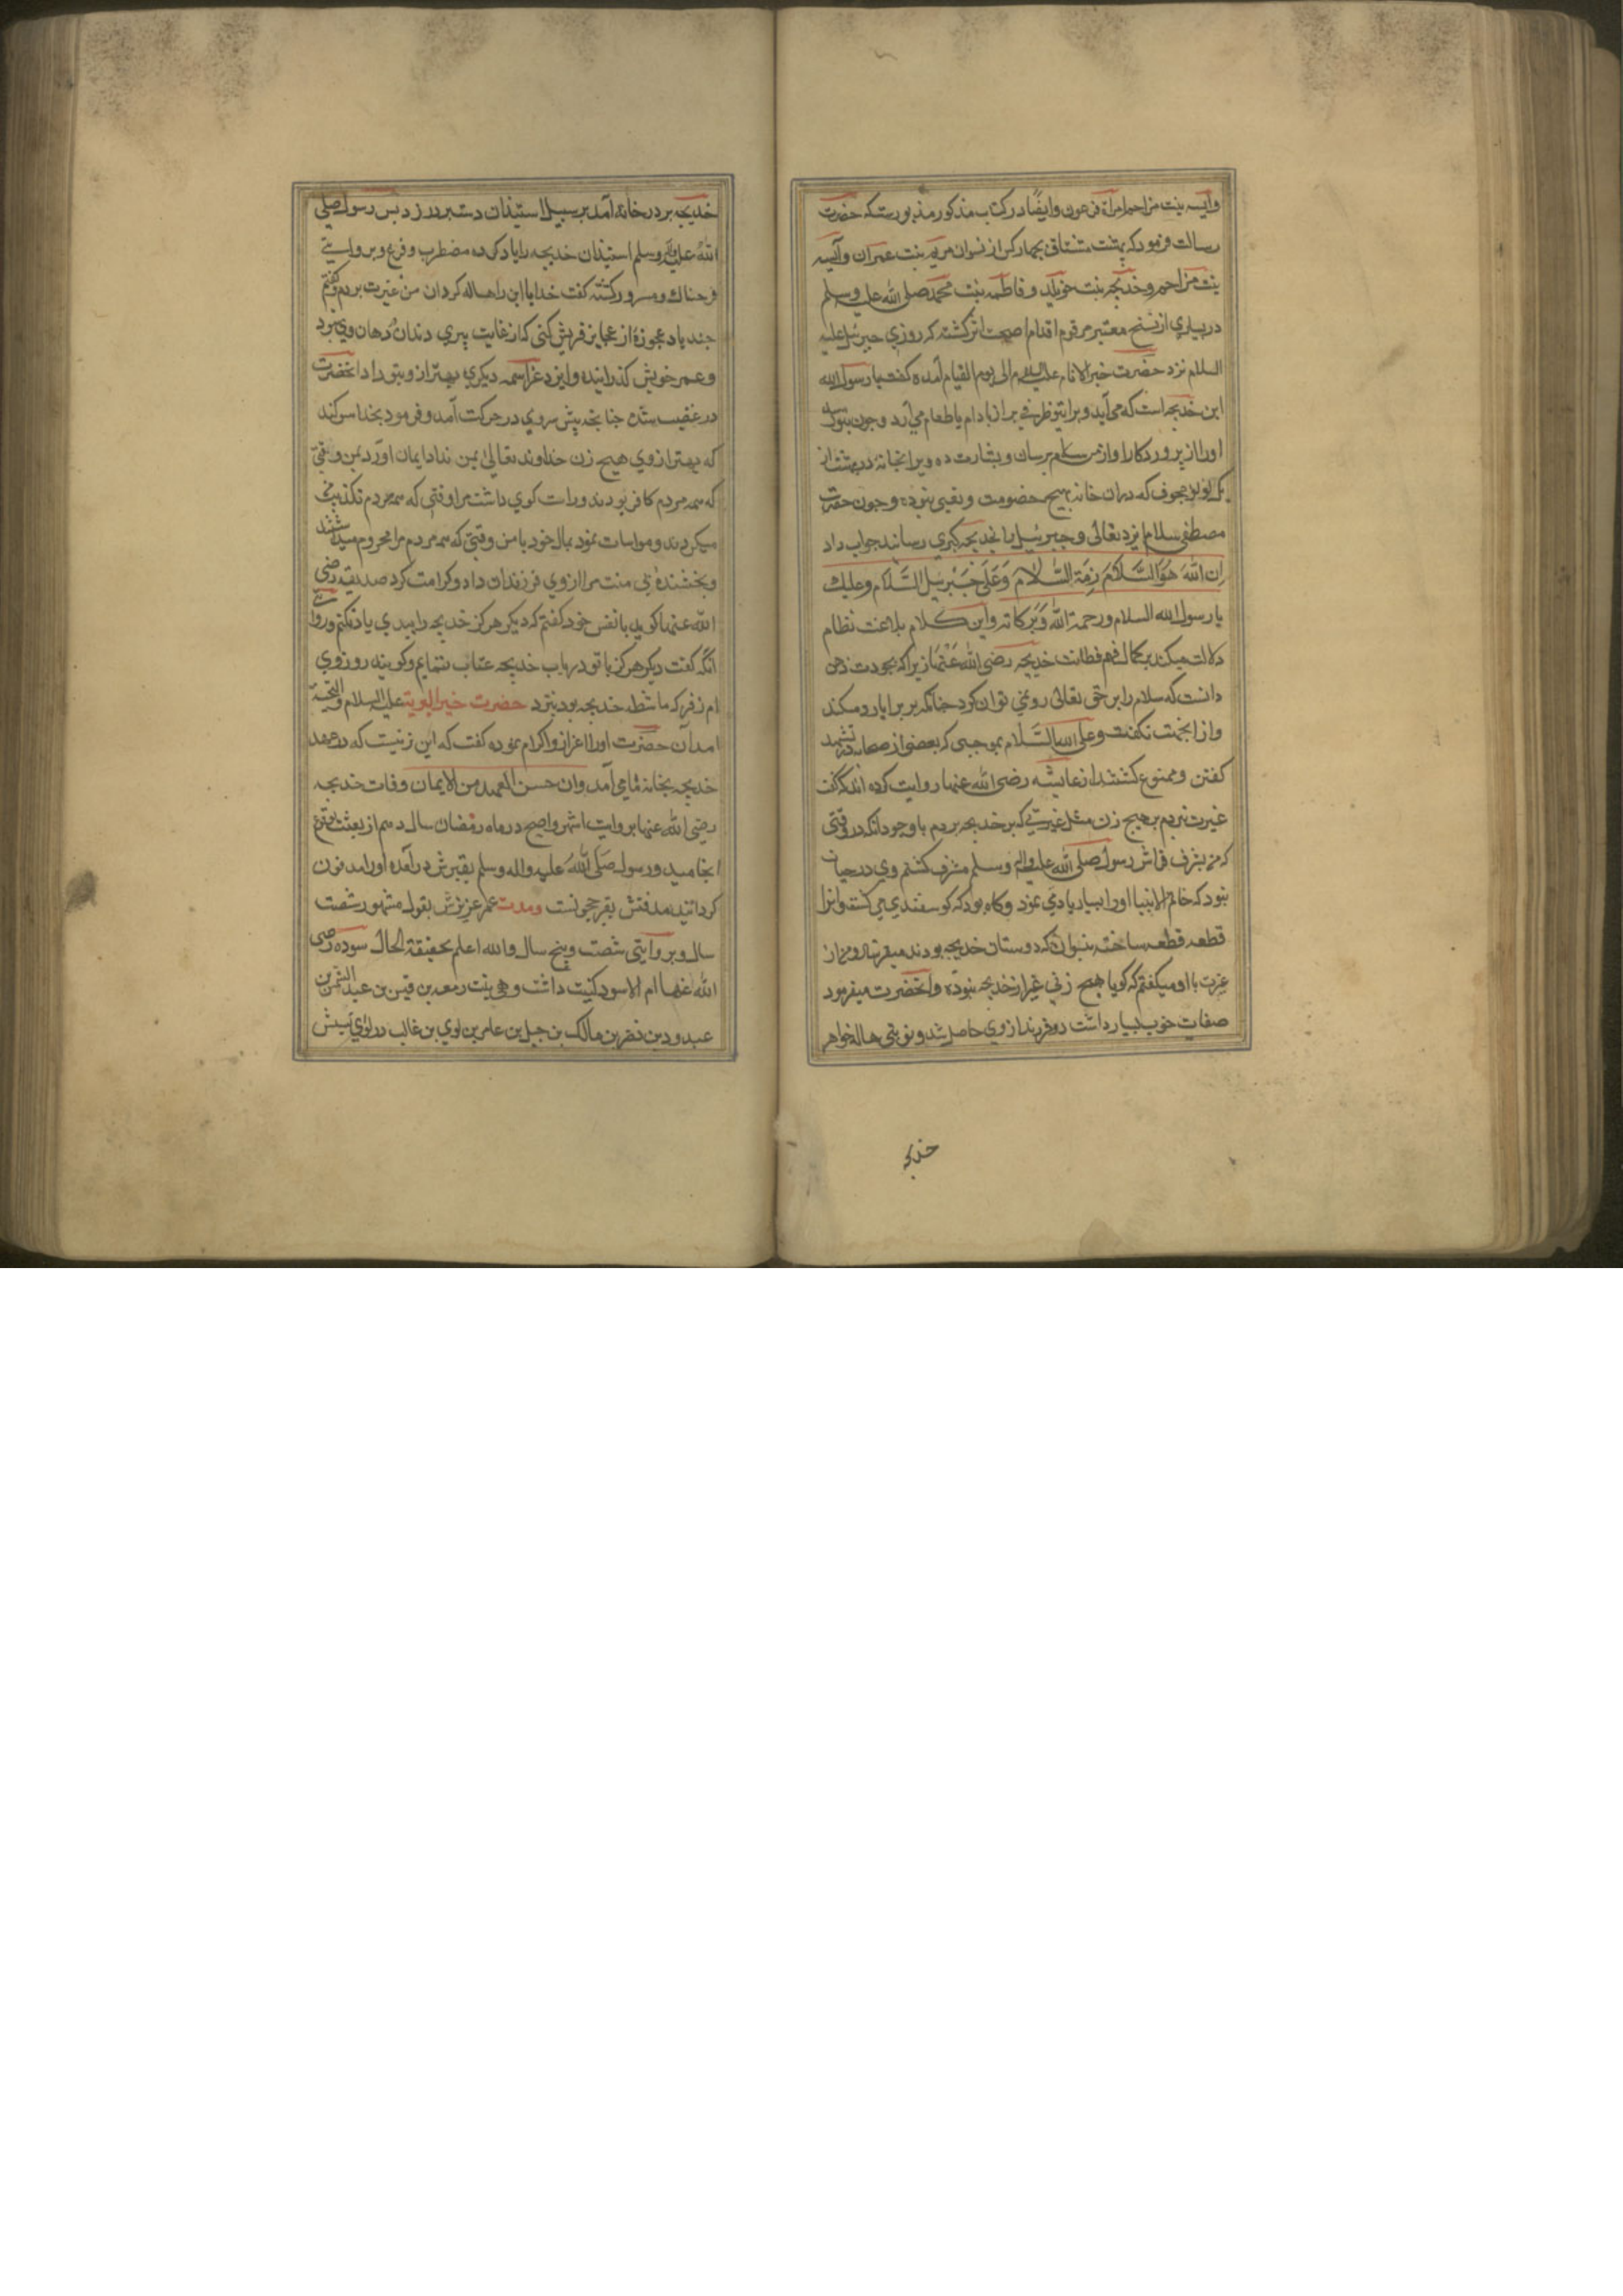 وآسیه بنت مزاحم امرأة فرعون وایضًا در کتاب مذکور مذبورست که حضرت
رسالت فرمود که بهشت مشتاق بچهار کس از نسوان مریم بنت عمران وآسیه
بنت مزاحم وخدیجه بنت خویلد وفاطمه بنت محمد صلی الله علیه وسلم
در بسیاری از نسخ معتبر مرقوم اقدام اصحت اثر کشته که روزی جبرئیل علیه
السلام نزد حضرت خیر الانام علیه السلام الی یوم القیام آمده کفت یا رسول الله
این خدیجه است که می آید وبرا تیو ظرفی پر از بادام یا طعام می آرد وچون بتو رسد
اورا از پروردکار او از من سلام برسان وبشارت ده ویرا بخانه در بهشت از
یک لولو مجوف که دران خانه هیچ خصومت وتعبی نبود وچون حضرت
مصطفی سلام ایزد تعالی وجبرئیل با بخدیجه کبری رسانند جواب داد
اِن اللهَ هُوَ السَّلامُ ومِنهُ السَّلامُ وَعَلی جَبْرئیلَ السَّلام وعلیك
یا رسول الله السلام ورحمة الله وَبَرکاته واین کلام بلاغت نظام
دلالت میکند بر کمال فهم فطانت خدیجه رضی الله عَنْهَا زیرا که بجودت ذهن
دانست که سلام را بر حق تعالی رد نمی توان کرد چنانکه بر برایا رد میکند
واز انجهت نکفت وعلی الله السَّلام بموجبی که بعضی از صحابه در تشهد
کفتن وممنوع کشتند از عایشه رضی الله عنها روایت کرده اند که کفت
غیرت نبردم بر هیچ زن مثل غیرتی که بر خدیجه بردم با وجود آنکه در وقتی
که من بشرف فراش رسول صلی الله علیه واله وسلم مشرف کشتم وی در حیات
نبود که خاتم الانبیا اورا بسیار یاد می نمود وکاه بود که کوسفندی می کشت وانرا
قطعه قطعه ساخته بنسوان که دوستان خدیجه بودند میفرستاد ومن از
غیرت با او میکفتم که کویا هیچ زنی غیر از خدیجه نبوده وانحضرت میفرمود
صفات خوب بسیار داشت دو فرزند از وی حاصل شد ونوبتی هاله خواهر
خدیجه
خدیجه بر در خانه آمد بر سبیل استیذان دست بر در زد پس رسول صلی
الله علیه واله وسلم استیذان خدیجه را یاد کرده مضطرب وفزع وبروایتی
فرحناك ومسرور کشته کفت خدایا این را هاله کردان من غیرت بردم وکفتم
چند یاد عجوزهٔ از عجایز قریش کنی که از غایت پیری دندان در دهان وی نبود
وعمر خویش کذرانیده وایزد عز اسمه دیکری بهتر از و بتو داد انحضرت
در غضب شده چنانچه پیش سر وی در حرکت آمد وفرمود بخدا سوکند
که بهتر از وی هیچ زن خداوند تعالی بمن نداد ایمان آورد بمن وقتی
که همه مردم کافر بودند وراست کوی داشت مرا وقتی که همه مردم تکذیب من
میکردند ومواسات نمود بمال خود با من وقتی که همه مردم مرا محروم میداشتند
وبخشنده بی منت مرا از وی فرزندان داد وکرامت کرد صدیقه رضی
الله عنها کوید با نفس خود کفتم که دیکر هرکز خدیجه را ببدی یاد نکنم وروایتی
آنکه کفت دیکر هرکز با تو در باب خدیجه عتاب ننمایم وکویند روزی
ام زفر که ماشطه خدیجه بود بنزد حضرت خیر البریة علیه السلام والتحیة
امد آن حضرت اورا اعزاز واکرام نموده کفت که این زنیست که در عهد
خدیجه بخانه ما می آمد وان حسن العهد من الایمان وفات خدیجه
رضی الله عنها بروایت اشهر واصح در ماه رمضان سال دهم از بعثت بوقوع
انجامید ورسول صَلَّی اللهُ علیه واله وسلم بقبرش در آمده اورا مدفون
کردانید مدفنش بقر حجونست ومدت عمر عزیزش بقول مشهور شصت
سال وبروایتی شصت وپنج سال والله اعلم بحقیقة الحال سوده رضی
الله عنها ام الاسود کنیت داشت وهی بنت زمعه بن قیس بن عبد الشمس بن
عبدود بن نصر بن مالك بن حسل بن عامر بن لوی بن غالب در لوی نسبش